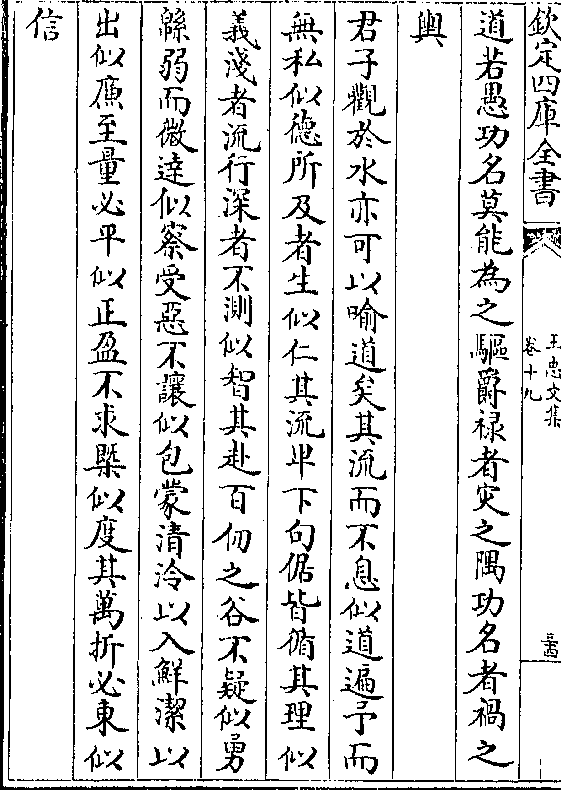 欽定四庫全書
王忠文集
卷十九
道若愚功名莫能為之驅爵禄者災之隅功名者禍之
輿
君子觀於水亦可以喻道矣其流而不息似道遍予而
無私似德所及者生似仁其流卑下句倨皆循其理似
義淺者流行深者不測似智其赴百仞之谷不疑似勇
緜弱而微達似察受惡不讓似包蒙清泠以入鮮潔以
出似廉至量必平似正盈不求槩似度其萬折必東似
信